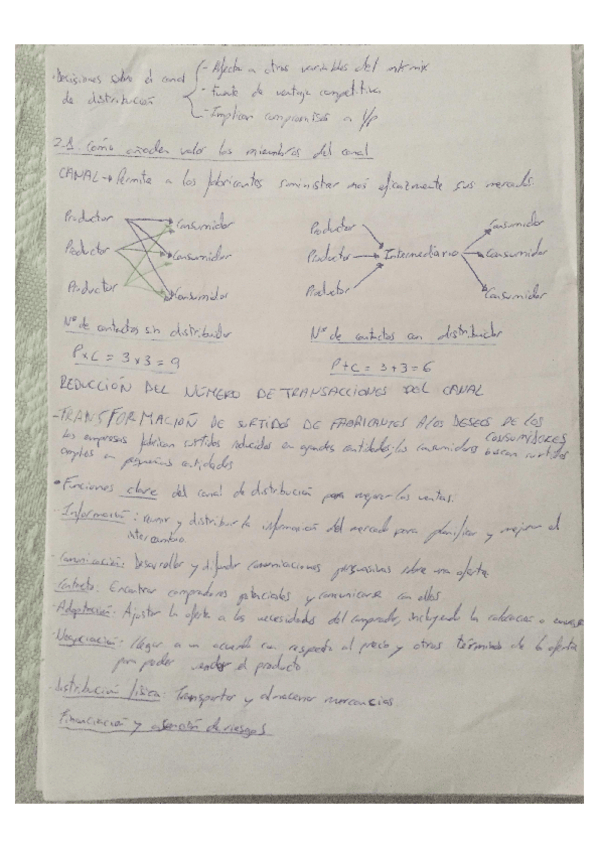 ·Decisiones sobre el canal de distribución
- Afecta a otras variables del mk mix
- Fuente de ventaja competitiva
- Implican compromisos a l/p
2.1. Cómo añaden valor los miembros del canal
CANAL → Permite a los fabricantes suministrar más eficazmente sus mercados.
Productor Consumidor
Productor Consumidor
Productor Consumidor
Productor Consumidor
Productor Intermediario Consumidor
Productor Consumidor
Nº de contactos sin distribuidor
P x C = 3 x 3 = 9
Nº de contactos con distribuidor
P + C = 3 + 3 = 6
REDUCCIÓN DEL NÚMERO DE TRANSACCIONES DEL CANAL
- TRANSFORMACIÓN DE SURTIDOS DE FABRICANTES A LOS DESEOS DE LOS CONSUMIDORES
las empresas fabrican surtidos reducidos en grandes cantidades, los consumidores buscan surtidos
amplios en pequeñas cantidades
• Funciones clave del canal de distribución para mejorar las ventas:
- Información: reunir y distribuir la información del mercado para planificar y mejorar el
intercambio
- Comunicación: Desarrollar y difundir comunicaciones persuasivas sobre una oferta
Contacto: Encontrar compradores potenciales y comunicarse con ellos
- Adaptación: Ajustar la oferta a las necesidades del comprador, incluyendo la
- Negociación: llegar a un acuerdo con respecto al precio y otros términos de la oferta
para poder vender el producto
Distribución física: Transportar y almacenar mercancías.
Financiación y asunción de riesgos